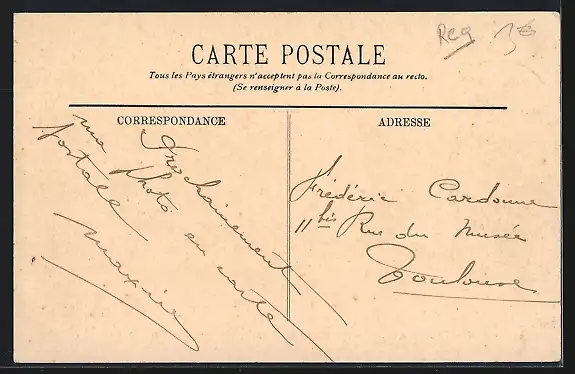 Reg 3€
CARTE POSTALE
Tous les Pays étrangers n'acceptent pas la Correspondance au recto.
(Se renseigner à la Poste).
CORRESPONDANCE
Prochainement
ma photo en carte
postale
Maxime
ADRESSE
Frédéric Cardonne
11bis Rue du Musée
Toulouse